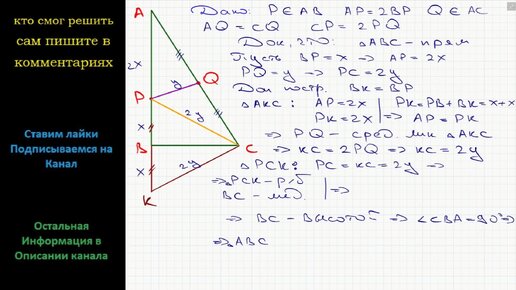 кто смог решить
сам пишите в
комментариях
Ставим лайки
Подписываемся на
Канал
Остальная
Информация в
Описании канала
A
2x
P
x
B
x
K
y
Q
2y
C
2y
Дано: P∈AB AP=2BP Q∈AC
AQ=CQ CP=2PQ
Док, что: △ABC-прям
Пусть BP=x ⇒ AP=2x
PQ=y ⇒ PC=2y
Доп постр. BK=BP
△AKC: AP=2x | PK=PB+BK=x+x
PK=2x | ⇒ AP=PK
⇒ PQ-сред. лин △AKC
⇒ KC=2PQ ⇒ KC=2y
△PCK: PC=KC=2y ⇒
⇒ △PCK-р/б | ⇒
BC-мед. |
⇒ BC-высотой ⇒ ∠CBA=90° ⇒
⇒ △ABC